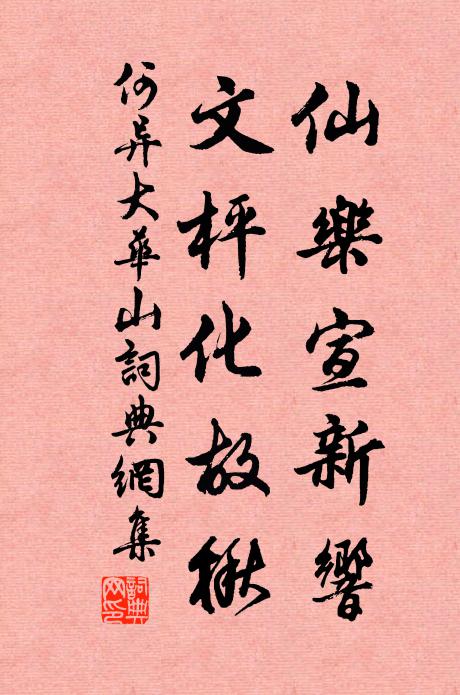 仙樂宣新響
文枰化故楸
何异大華山詞典網集
詞典網印